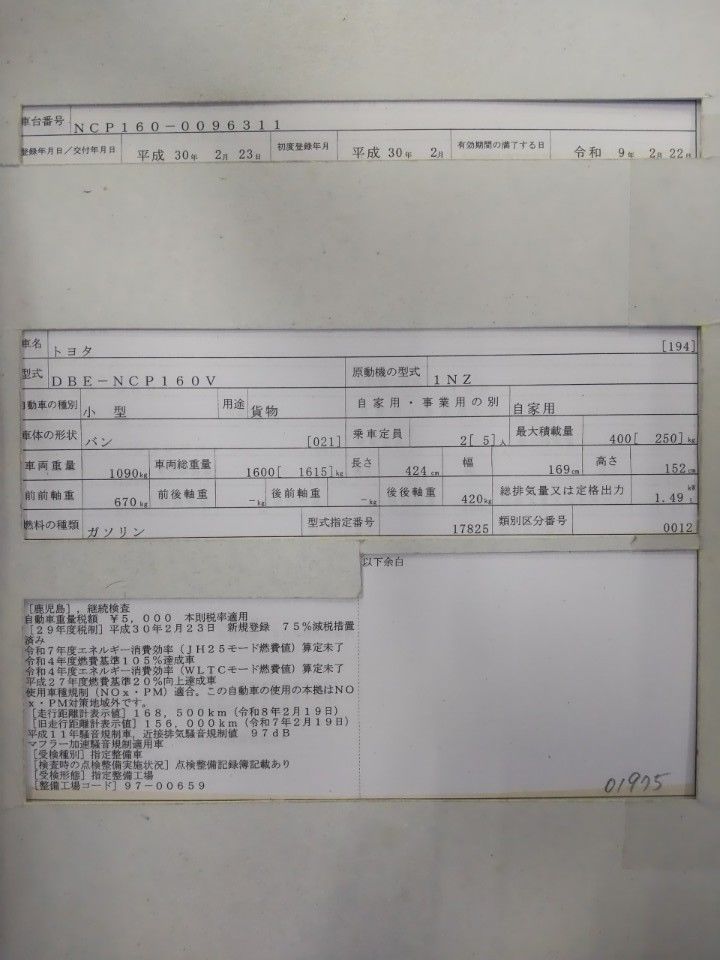 車台番号 NCP160-0096311
登録年月日/交付年月日 平成 30年 2月 23日 初度登録年月 平成 30年 2月 有効期間の満了する日 令和 9年 2月 22日
車名 トヨタ [194]
型式 DBE-NCP160V 原動機の型式 1NZ
自動車の種別 小 型 用途 貨物 自家用・事業用の別 自家用
車体の形状 バン [021] 乗車定員 2[ 5]人 最大積載量 400[ 250]kg
車両重量 1090kg 車両総重量 1600[ 1615]kg 長さ 424cm 幅 169cm 高さ 152cm
前前軸重 670kg 前後軸重 -kg 後前軸重 -kg 後後軸重 420kg 総排気量又は定格出力 1.49 kW L
燃料の種類 ガソリン 型式指定番号 17825 類別区分番号 0012
以下余白
[鹿児島],継続検査
自動車重量税額 ¥5,000 本則税率適用
[29年度税制]平成30年2月23日 新規登録 75%減税措置
済み
令和7年度エネルギー消費効率(JH25モード燃費値)算定未了
令和4年度燃費基準105%達成車
令和4年度エネルギー消費効率(WLTCモード燃費値)算定未了
平成27年度燃費基準20%向上達成車
使用車種規制(NOx・PM)適合。この自動車の使用の本拠はNO
x・PM対策地域外です。
[走行距離計表示値]168,500km(令和8年2月19日)
[旧走行距離計表示値]156,000km(令和7年2月19日)
平成11年騒音規制車、近接排気騒音規制値 97dB
マフラー加速騒音規制適用車
[受検種別]指定整備車
[検査時の点検整備実施状況]点検整備記録簿記載あり
[受検形態]指定整備工場
[整備工場コード]97-00659
01975